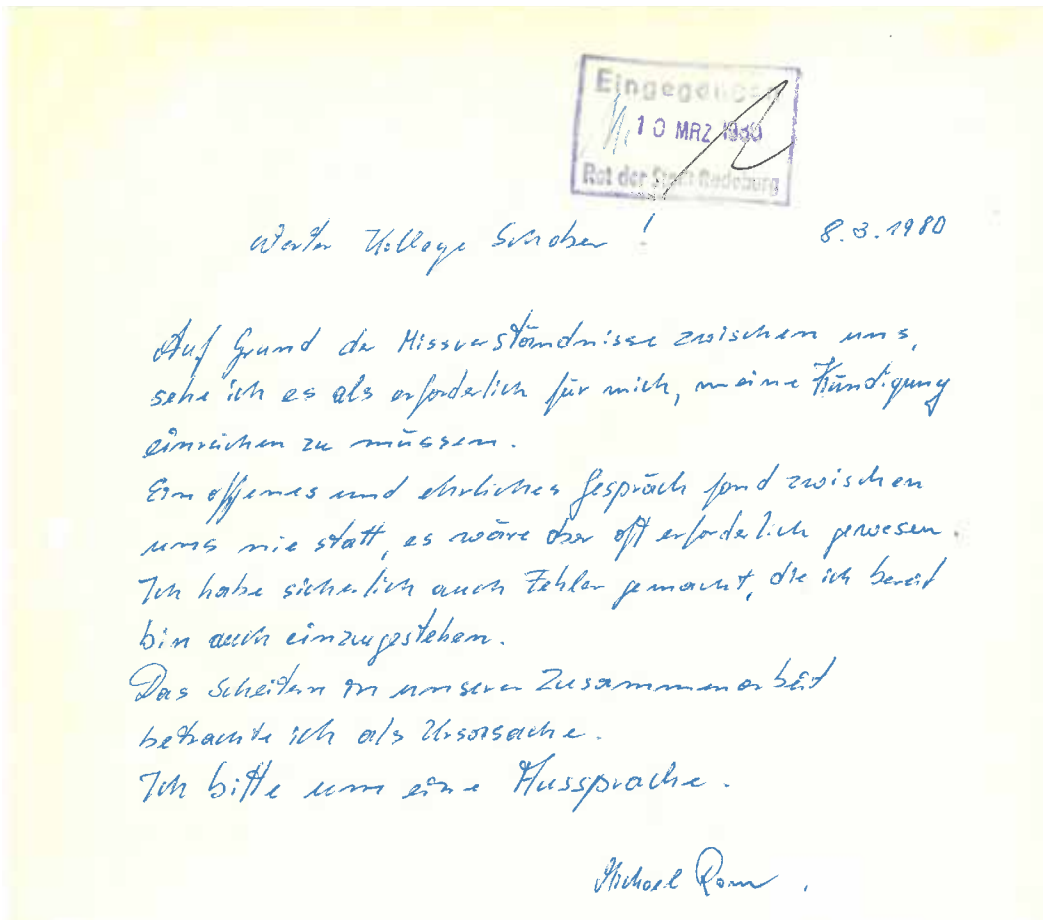 Eingegangen
10 MRZ 1980
Rat der Stadt Radeburg
Werter Kollege Schober !
8.3.1980
Auf Grund der Missverständnisse zwischen uns,
sehe ich es als erforderlich für mich, meine Kündigung
einreichen zu müssen.
Ein offenes und ehrliches Gespräch fand zwischen
uns nie statt, es wäre aber oft erforderlich gewesen.
Ich habe sicherlich auch Fehler gemacht, die ich bereit
bin auch einzugestehen.
Das Scheitern in unserer Zusammenarbeit
betrachte ich als Ursache.
Ich bitte um eine Aussprache.
Michael